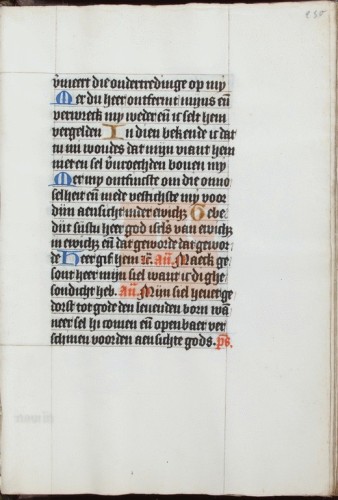 v̄meert die onderctredinge op my
Mer du heer ontferm mijns eñ
verwrect my weder eñ ic sel hem
vergelden In dien bekende ic dat
tu mi woudes dat mijn viant hem
niet en sel v̄vroechden bouen my
Mer my ontfincste om die onno
selheit eñ mede vestichste my voor
dijn aensicht inder ewich Gebe
dijt sustu heer god israels van ewich
in ewich eñ dat geworde dat gewor
de Heer gif hem Añ. Maeck ge
sont heer mijn siel want ic di ghe
sondicht heb. Añ. Mijn siel heuet ge
dorst tot gode den leuenden born wa
neer sel ic comen eñ openbaer ver
schinen voor den aensichte gods. ps.